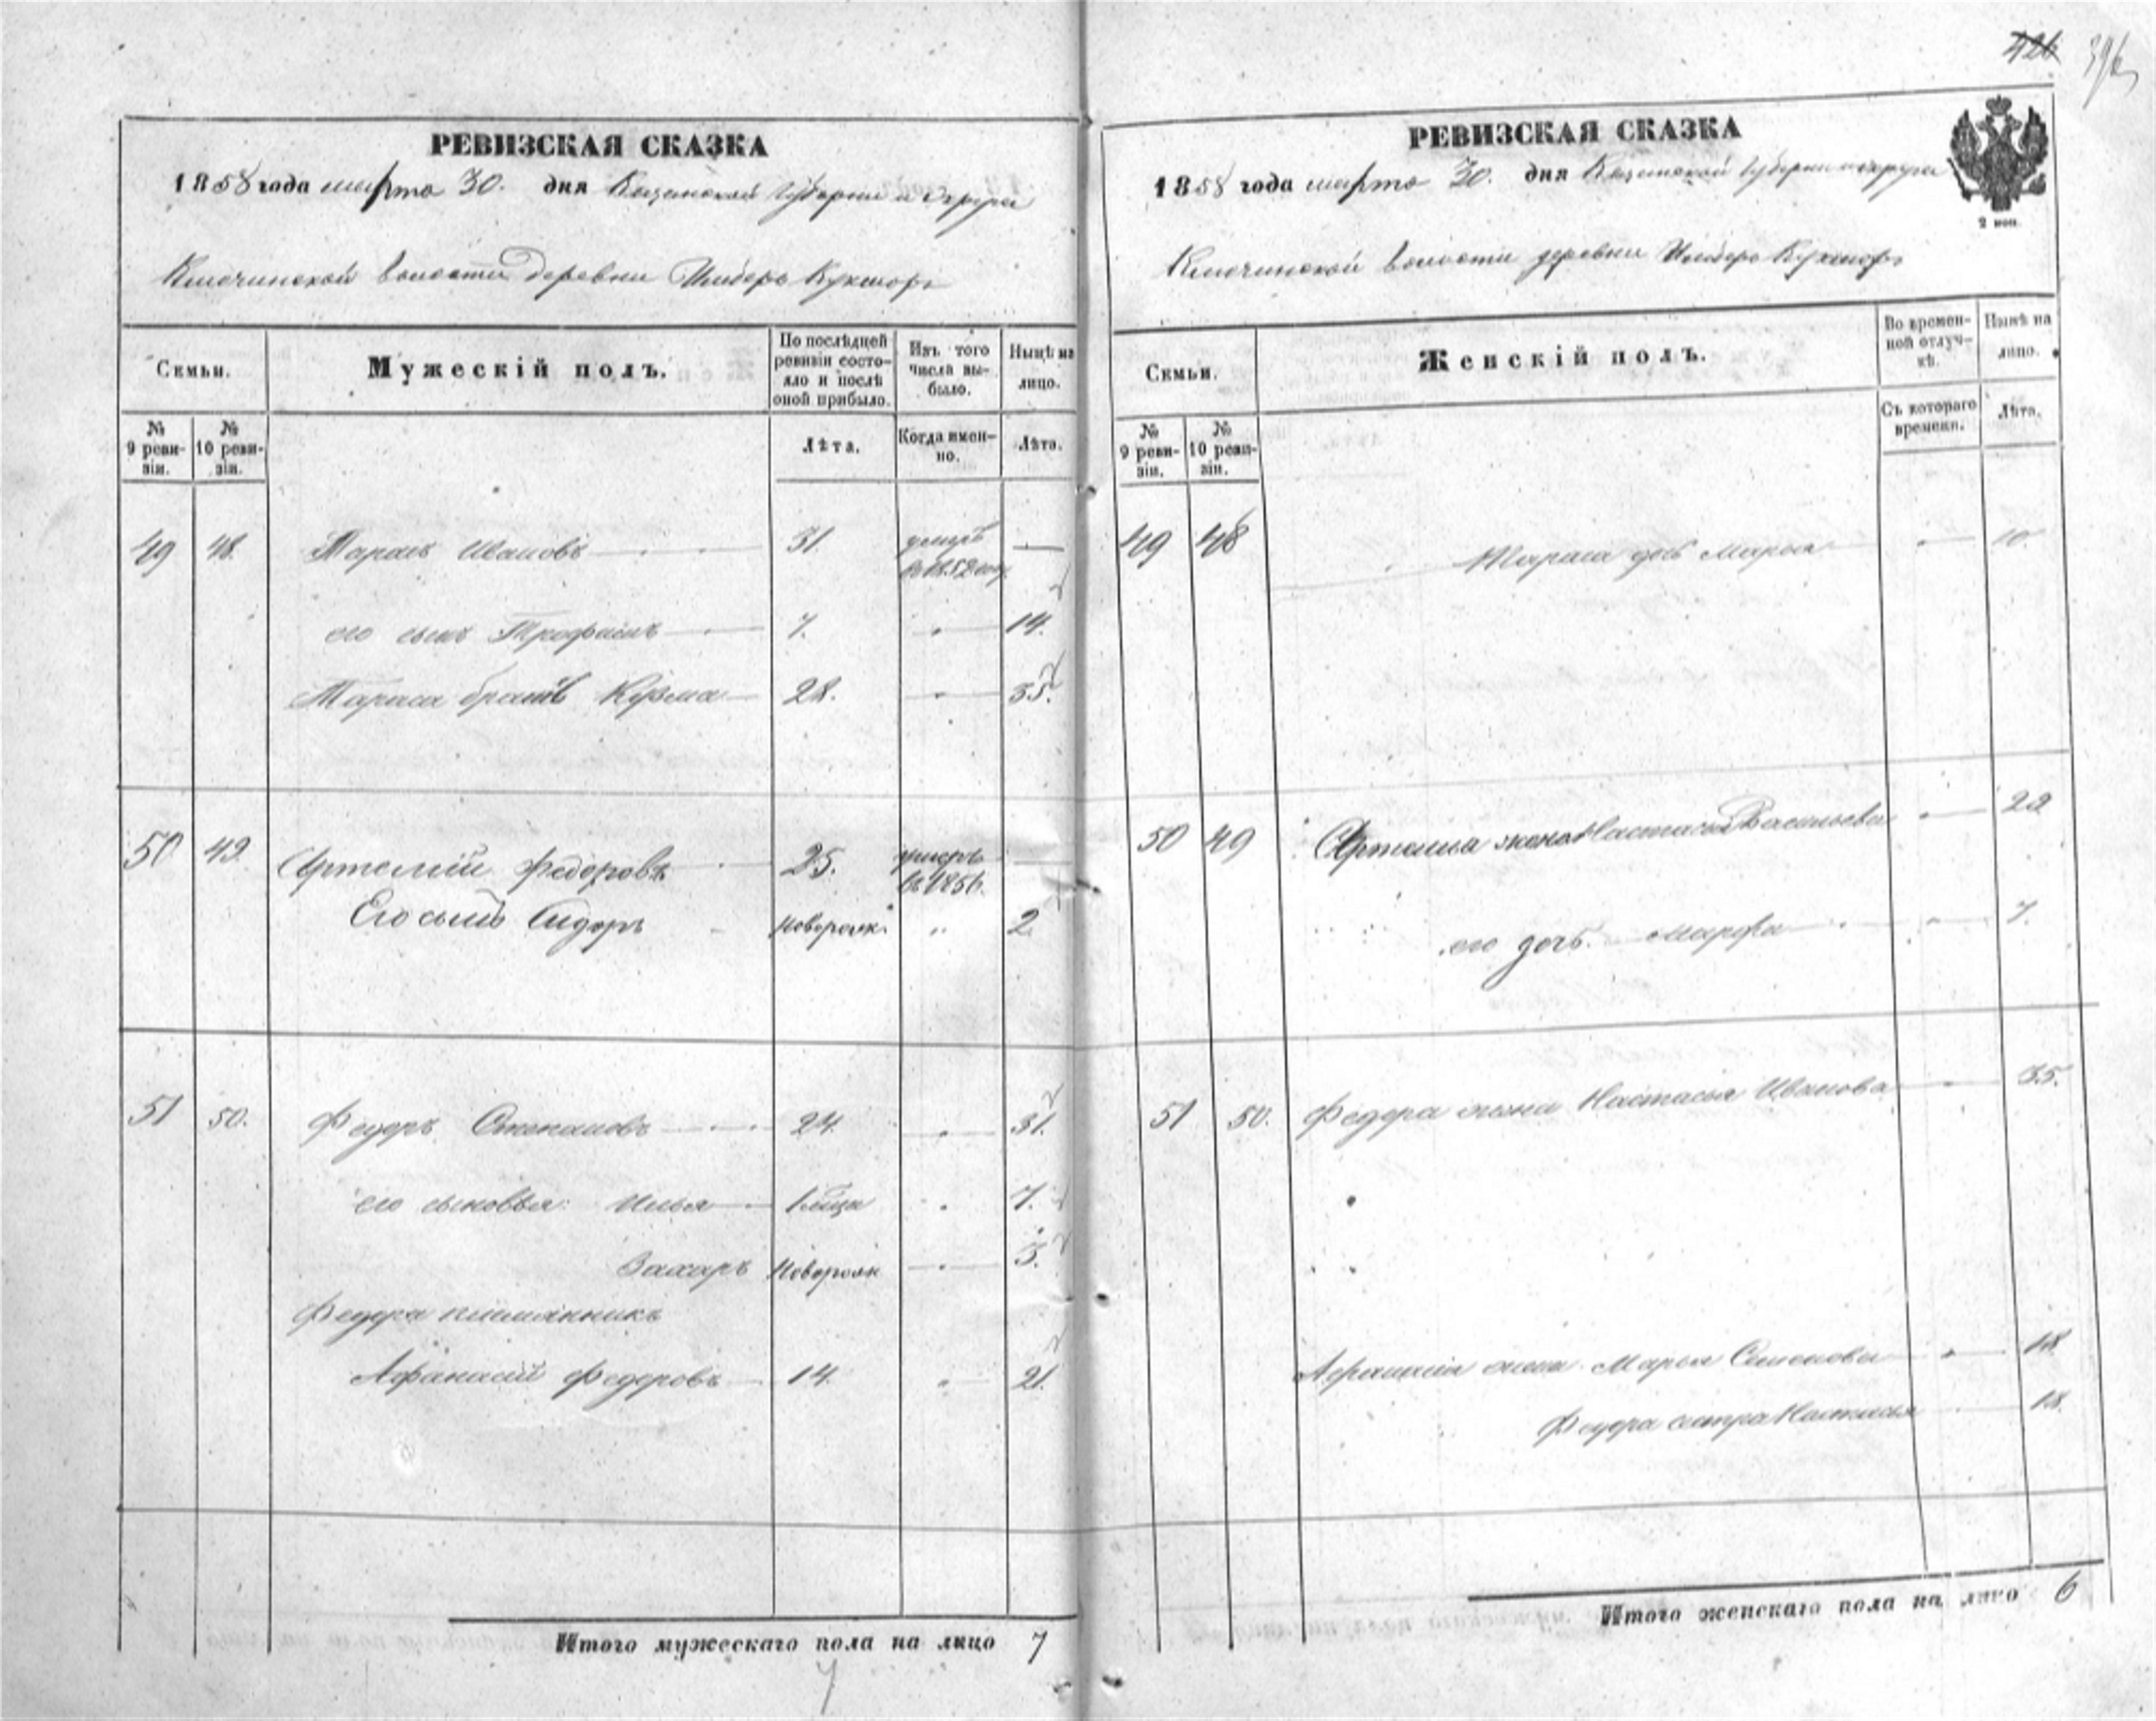 426 396
РЕВИЗСКАЯ СКАЗКА
1858 года марта 30. дня Казанской Губернии и Округа
Ключинской волости деревни Кукморъ
Семьи.
Мужескій полъ.
По послѣдней ревизіи состояло и послѣ оной прибыло.
Изъ того числа выбыло.
Нынѣ на лицо.
№ 9 ревизіи.
№ 10 ревизіи.
Лѣта.
Когда именно.
Лѣта.
49 48. Тарасъ Ивановъ 31. умеръ въ 1852 году —
его сынъ Трофимъ 7. " 14.
Тараса братъ Кузма 28. " 35.
50 49. Артемій Федоровъ 25. умеръ въ 1856. —
Его сынъ Сидоръ новорожд. " 2.
51 50. Федоръ Степановъ 24. " 31.
его сыновья: Илья " 7.
Захаръ новорожд " 5.
Федора племянникъ
Афанасій Федоровъ 14. " 21.
Итого мужескаго пола на лицо 7
7
РЕВИЗСКАЯ СКАЗКА
1858 года марта 30. дня Казанской Губернии и округа
2 коп.
Ключинской волости деревни Кукморъ
Семьи.
Женскій полъ.
Во временной отлучкѣ.
Нынѣ на лицо.
№ 9 ревизіи.
№ 10 ревизіи.
Съ котораго времени.
Лѣта.
49 48 Тараса дочь Марья " 10.
50 49 Артемія жена Настасья Васильева " 29
его дочь Марфа " 7.
51 50. Федора жена Настасья Иванова " 35.
Афанасія жена Марья Семенова " 18
Федора сестра Настасья 18.
Итого женскаго пола на лицо 6